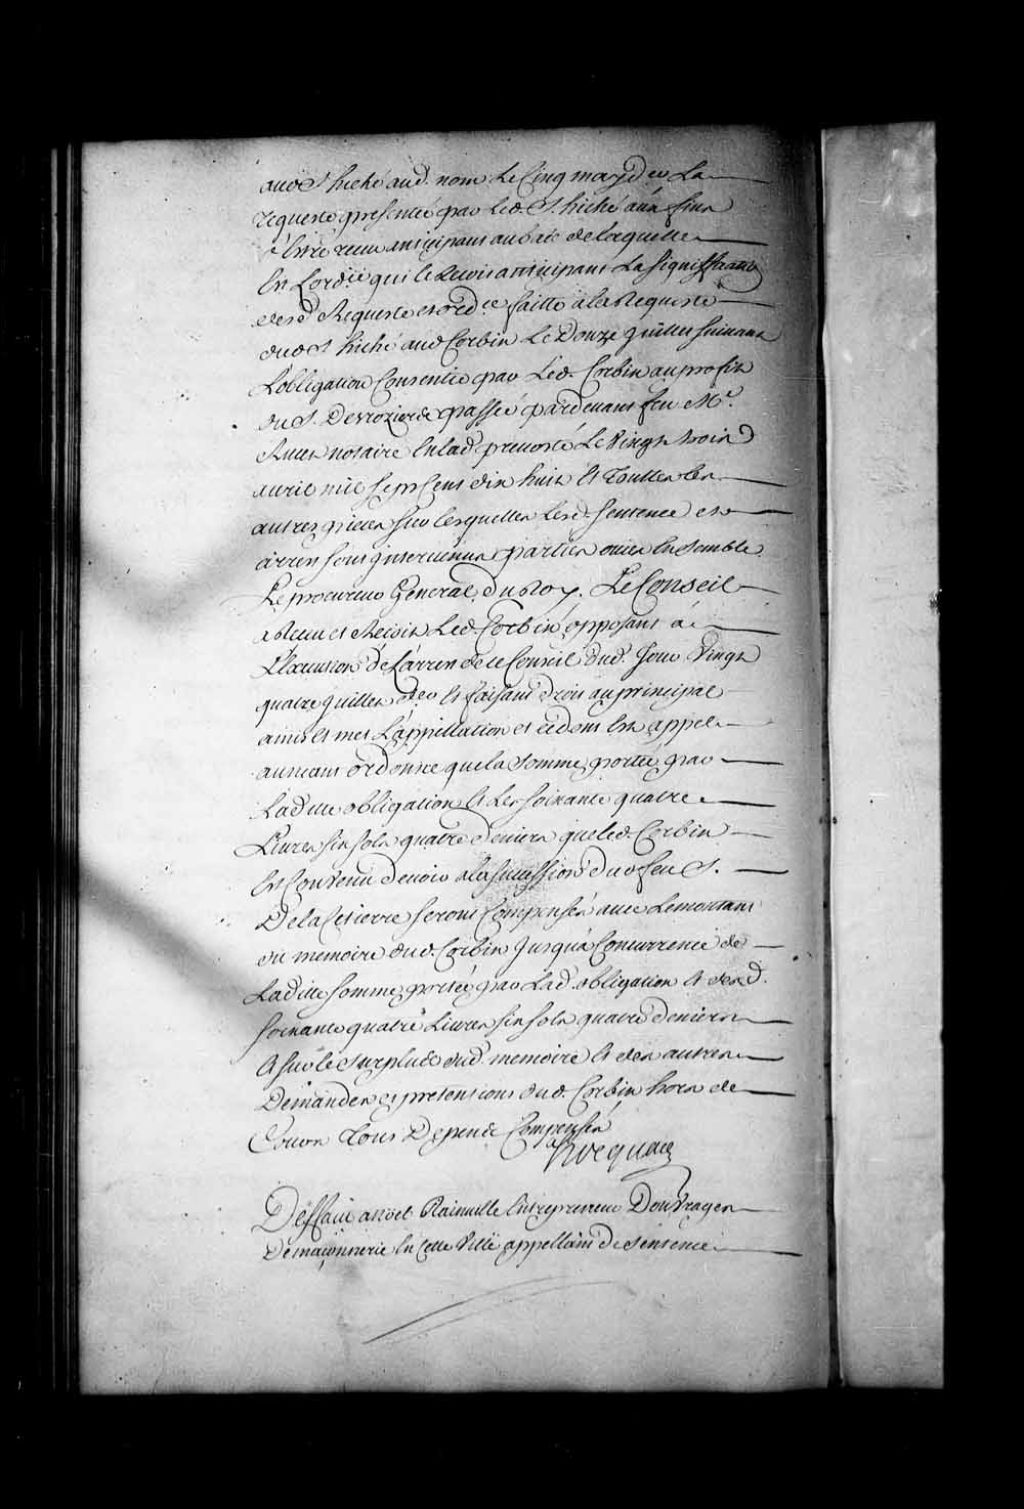 aud. S. hiché aud. nom Le Cinq may d.er La
requeste presentée par Led. S. hiché aux fins
d'estre receu anticipant au bas de Laquelle
Est Lord.ce qui le Recoit anticipant La signiffication
desd. Requeste et ord.ce faitte a la Requeste
dud. S. hiché aud. Corbin Le Douze juillet suivant
L'obligation Consentie par Led. Corbin au profit
du S. Desroziers passée pardevant feu M.e
Rivet notaire En lad. prevosté Le Vingt trois
avril mil Sept Cent dix huit Et Touttes les
autres pieces sur lesquelles Lesd. sentence et
arrest sont intervenus parties ouies Ensemble
Le procureur General du Roy. Le Conseil
a Receu et Recoit Led. Corbin opposant a
L'Execution de L'arrest de ce Conseil dud. Jour Vingt
quatre juillet d.er Et faisant droit au principal
a mis Et met L'appellation et ce dont Est appel
au neant ordonne que la somme portée par
Laditte obligation Et Les soixante quatre
Livres six sols quatre deniers que led. Corbin
Est Convenu devoir a la succession dud. feu S.
De la Cetierre seront Compensés avec Le montant
du memoire dud. Corbin jusqu'a Concurrence de
Laditte somme portée par Lad. obligation Et desd.
soixante quatre Livres six sols quatre deniers
Et sur le surplus dud. memoire Et des autres
Demandes et pretentions dud. Corbin hors de
Cour Tous Depens Compensés
hocquart
Deffaut a Noel Rainville Entrepreneur D'ouvrages
De maçonnerie En Cette Ville appellant De sentence